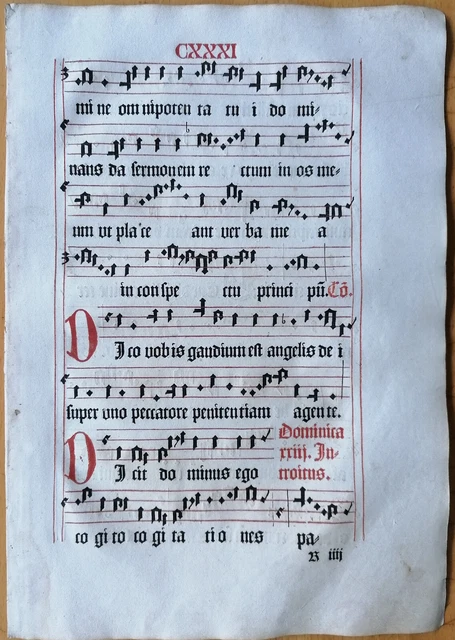 CXXXI
mi ne om nipoten ta tu i do mi-
nans da sermonem re ctum in os me-
um vt pla ce ant ver ba me a
in con spe ctu princi pū. Cō.
DIco vob is gaudium est angelis de i
super vno peccatore peniten tiam agen te.
Dominica
DI cit do minus ego xxiij. In-
troitus.
co gi to co gi ta ti o nes pa-
R iiij